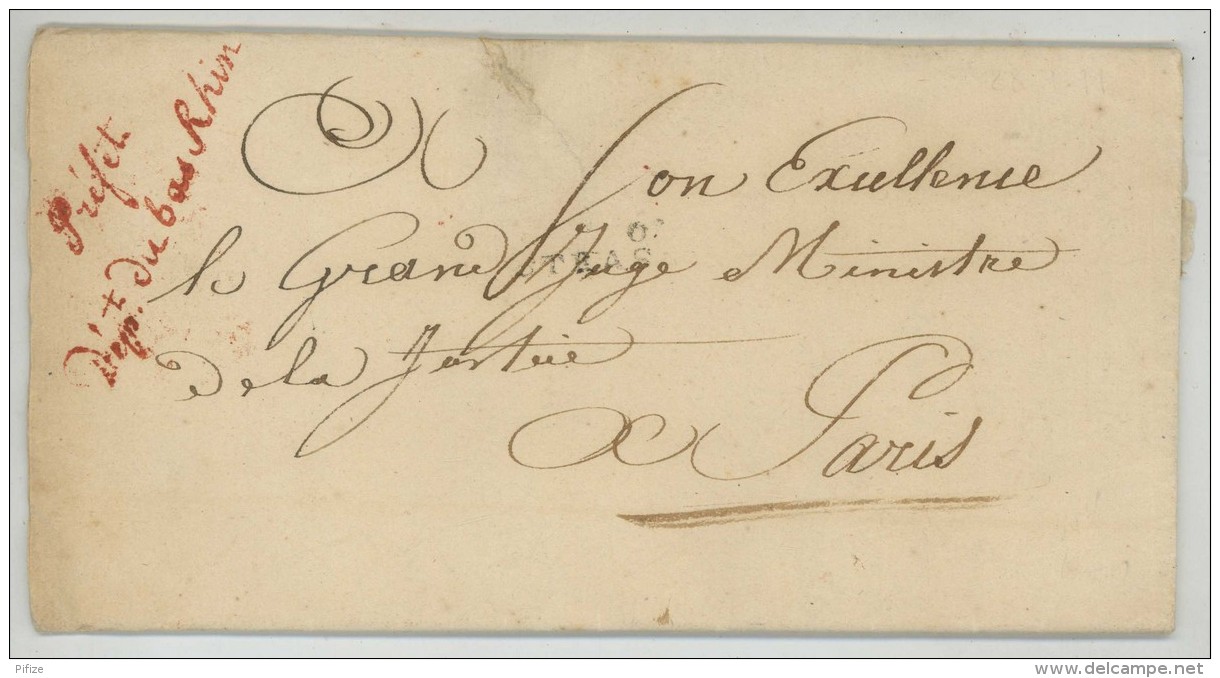 Préfet
Dépt. du bas Rhin
A Son Excellence
le Grand Juge Ministre
de la Justice
a Paris
STRAS
Pifize
delcampe.net